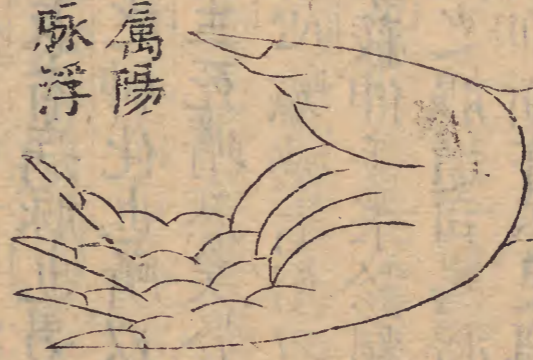 属陽
脉浮